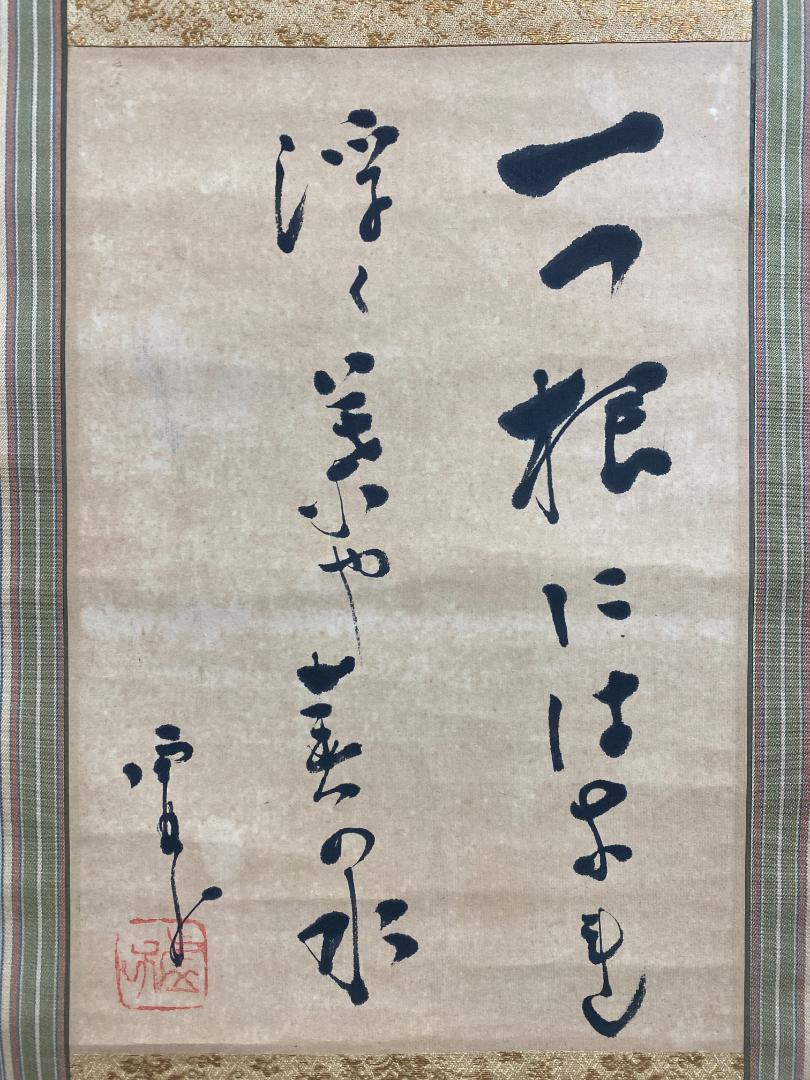 一つ根にはなれ
浮く葉や春の水
虚子